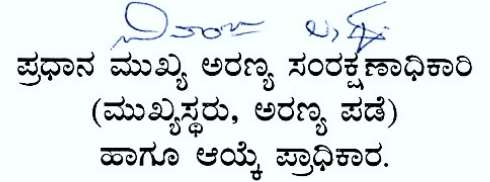 ಪ್ರಧಾನ ಮುಖ್ಯ ಅರಣ್ಯ ಸಂರಕ್ಷಣಾಧಿಕಾರಿ
(ಮುಖ್ಯಸ್ಥರು, ಅರಣ್ಯ ಪಡೆ)
ಹಾಗೂ ಆಯ್ಕೆ ಪ್ರಾಧಿಕಾರ.